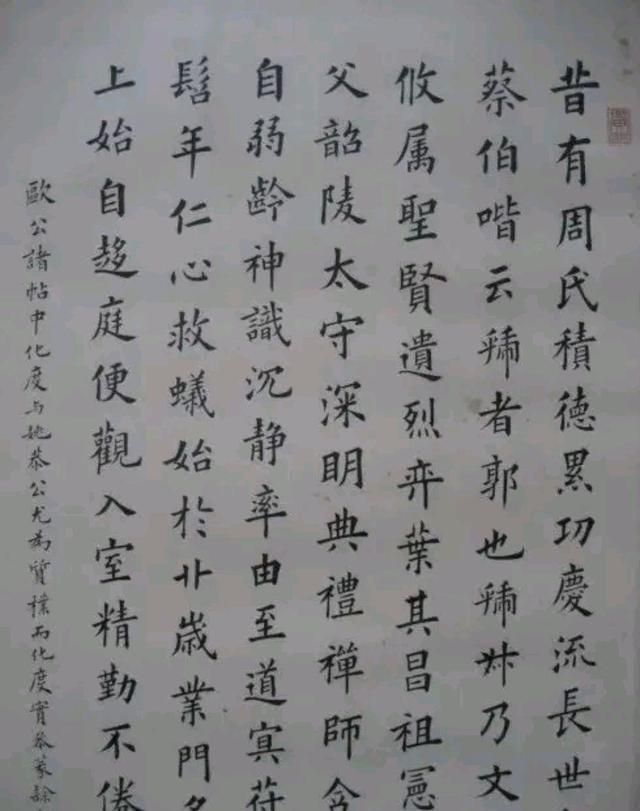 昔有周氏積德累功慶流長世
蔡伯喈云虢者郭也虢叔乃文
攸属聖賢遺烈弈葉其昌祖憲
父韶陵太守深明典禮禪師含
自弱齡神識沉静率由至道寘苻
髫年仁心救蟻始於廿歳業門名
上始自趍庭便觀入室精勤不倦
歐公諸帖中化度与姚恭公尤為質樸而化度實叅篆